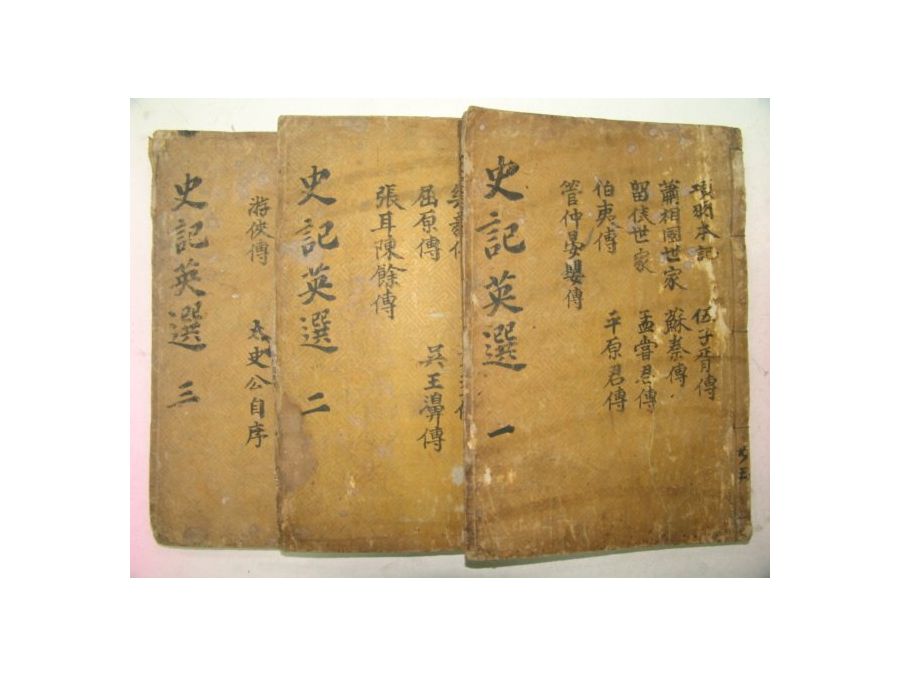 史記英選 一
項羽本記
蕭相國世家
留侯世家
伯夷傳
管仲晏嬰傳
伍子胥傳
蘇秦傳
孟嘗君傳
平原君傳
共五
史記英選 二
屈原傳
張耳陳餘傳
吳王濞傳
史記英選 三
游俠傳
太史公自序